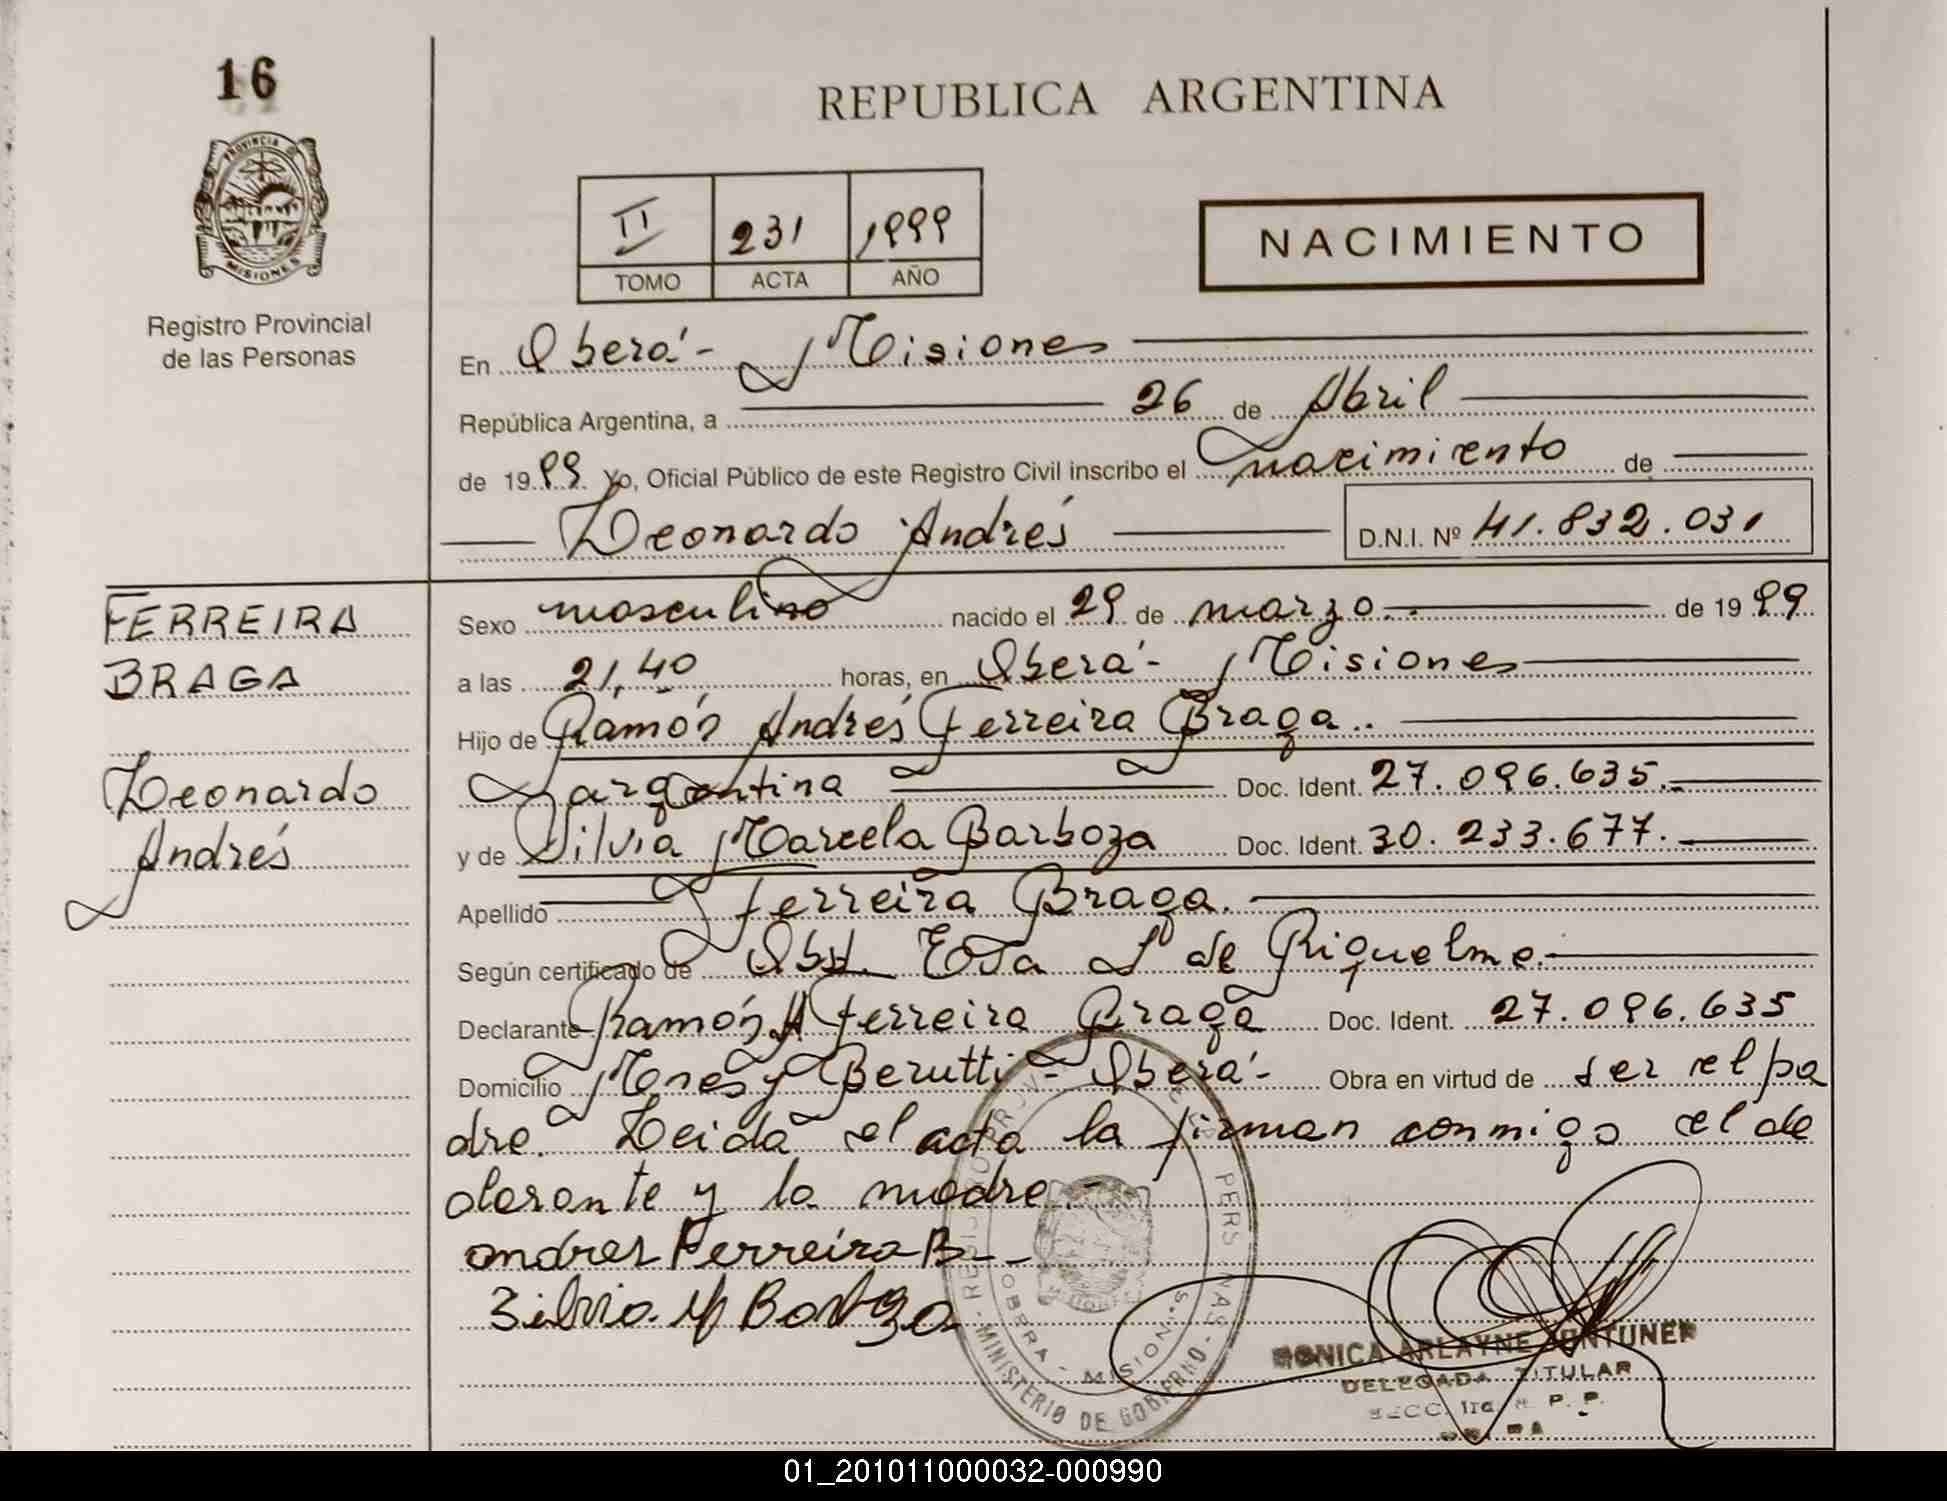 16
PROVINCIA
MISIONES
Registro Provincial
de las Personas
REPUBLICA ARGENTINA
II 231 1999
TOMO ACTA AÑO
NACIMIENTO
En Oberá - Misiones
República Argentina, a 26 de Abril
de 1999 Yo, Oficial Público de este Registro Civil inscribo el nacimiento de
Leonardo Andrés D.N.I. Nº 41.832.031
FERREIRA
BRAGA
Leonardo
Andrés
Sexo masculino nacido el 29 de marzo de 1999
a las 21,40 horas, en Oberá - Misiones
Hijo de Ramón Andrés Ferreira Braga
argentina Doc. Ident. 27.096.635
y de Silvia Marcela Barboza Doc. Ident. 30.233.677
Apellido Ferreira Braga
Según certificado de Obst. de Riquelme
Declarante Ramón A Ferreira Braga Doc. Ident. 27.096.635
Domicilio Mones y Berutti - Oberá - Obra en virtud de ser el pa
dre. Leida el acta la firman conmigo el de
clarante y la madre.-
andres Ferreira B
Silvia M Barboza
MINISTERIO DE GOBIERNO
OBERA - MISIONES
ARLAYNE
DELEGADA TITULAR
01_201011000032-000990